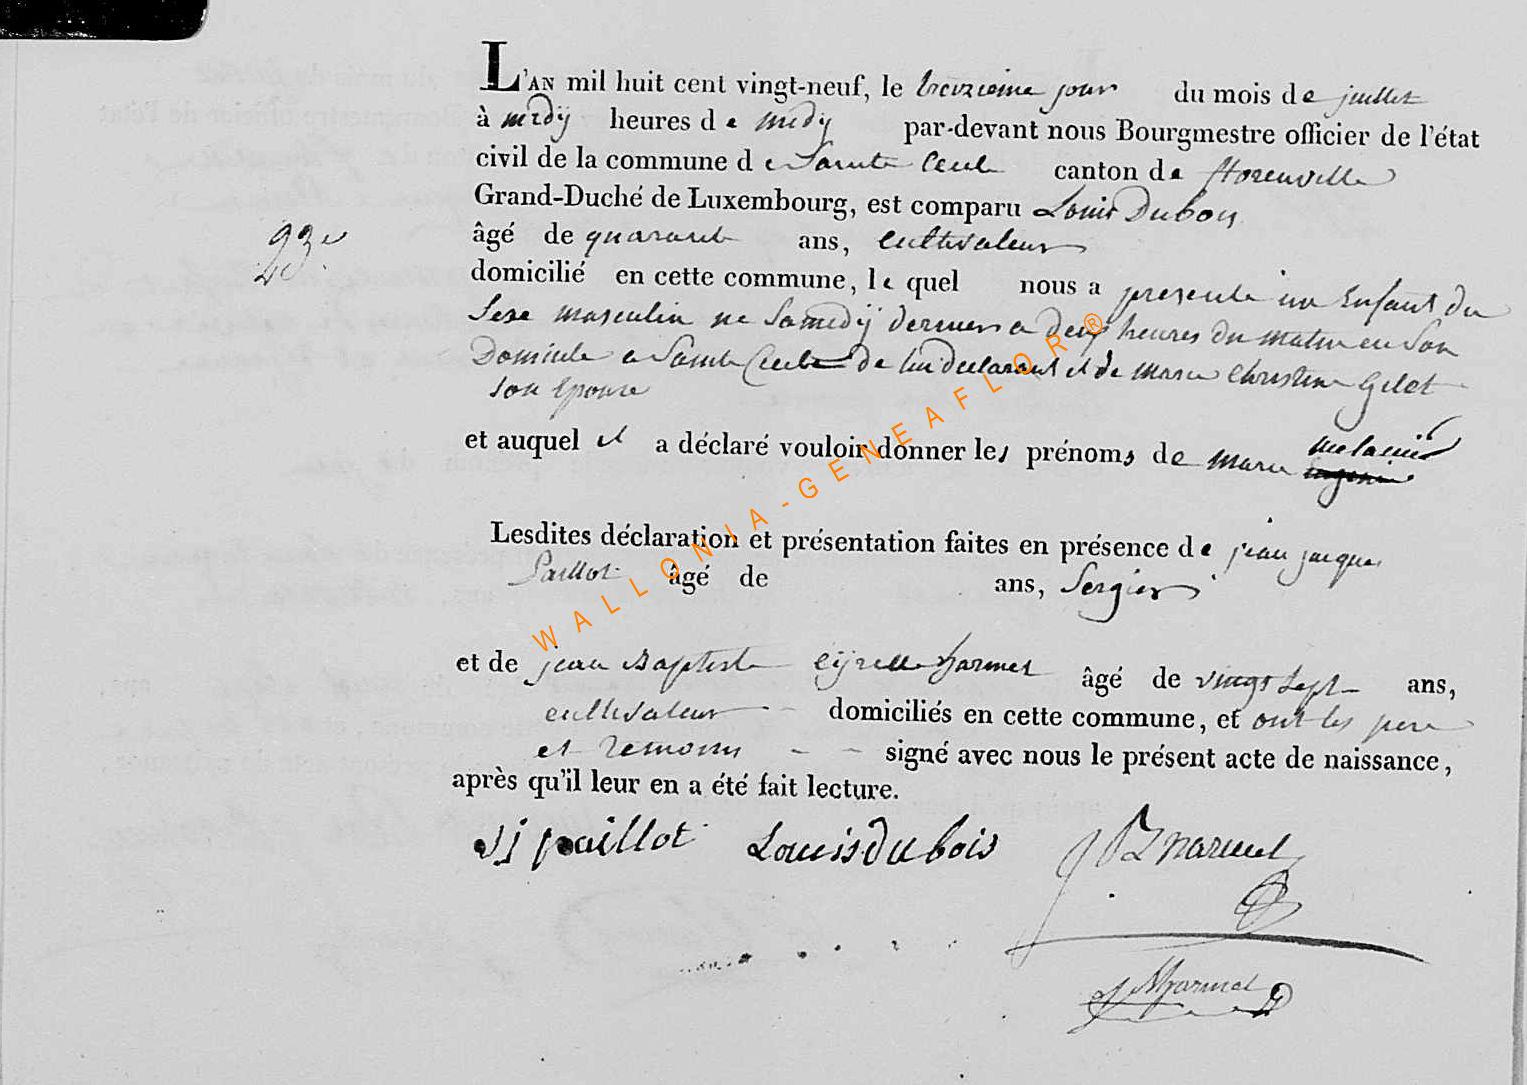 L'AN mil huit cent vingt-neuf, le treizieme jour du mois de juillet
à midy heures de midy par-devant nous Bourgmestre officier de l'état
civil de la commune de Sainte Cecile canton de florenville
Grand-Duché de Luxembourg, est comparu Louis Dubois
âgé de quarante ans, cultivateur
23e
domicilié en cette commune, le quel nous a presente un Enfant du
Sexe masculin ne Samedy dernier a deux heures du matin en Son
Domicile a Sainte Cecile de lui declarant et de marie Christine Gilet
son Epouse
et auquel il a déclaré vouloir donner les prénoms de marie melanie
Lesdites déclaration et présentation faites en présence de jean jacques
Paillot âgé de ans, Sergier
et de jean Baptiste Cyrille harmel âgé de vingt Sept ans,
cultivateur - domiciliés en cette commune, et ont les pere
et temoins - - signé avec nous le présent acte de naissance,
après qu'il leur en a été fait lecture.
jj paillot Louis dubois J B harmel
harmel
WALLONIA-GENEAFLOR®